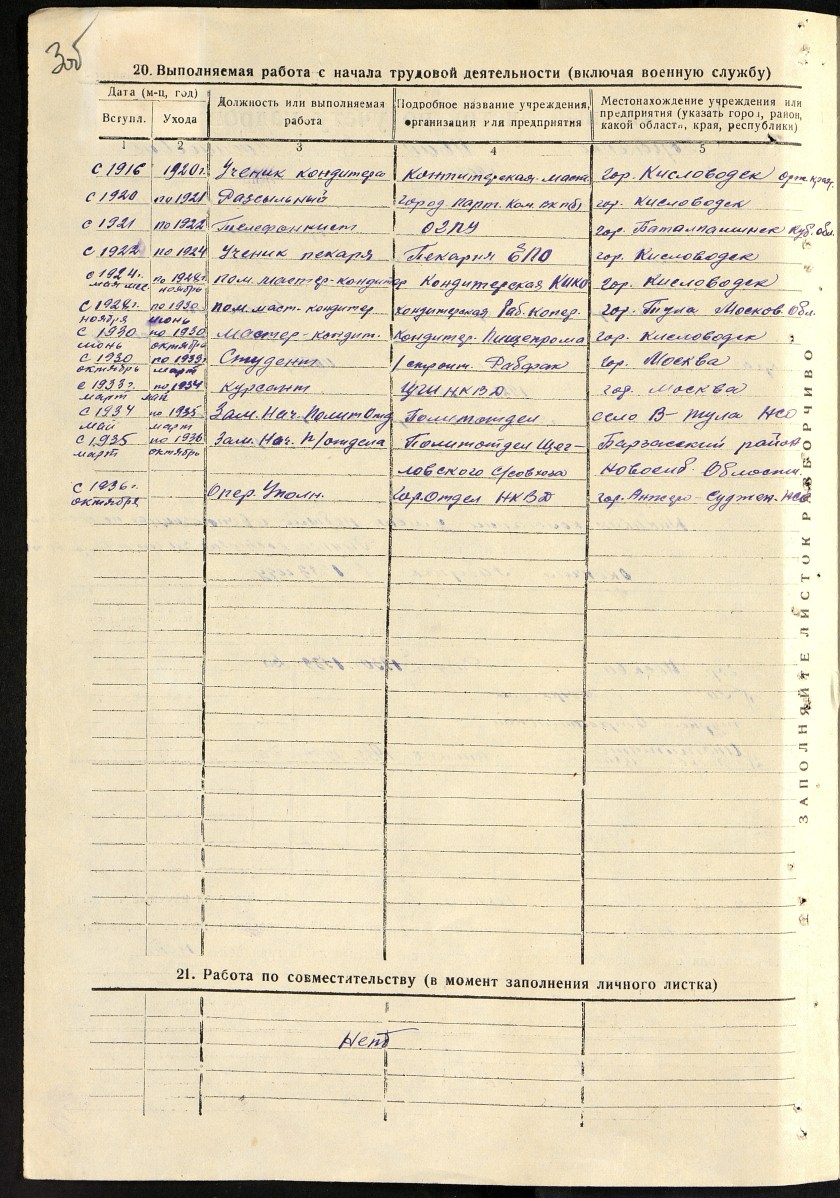 3об
20. Выполняемая работа с начала трудовой деятельности (включая военную службу)
Дата (м-ц, год)
Вступл. Ухода
Должность или выполняемая работа
Подробное название учреждения, организации или предприятия
Местонахождение учреждения или предприятия (указать город, район, какой области, края, республики)
1 2 3 4 5
с 1916 1920 г. Ученик кондитера Контитерская гор. Кисловодск
с 1920 по 1921 Рассыльный город. парт. Ком. ВКП(б) гор. Кисловодск
с 1921 по 1922 Телефонист ОЗПУ гор. Баталпашинск Куб. обл.
с 1922 по 1924 Ученик пекаря Пекария ЕПО гор. Кисловодск
с 1924 г. по 1928 г. пом. мастер-кондитер Кондитерская гор. Кисловодск
ноябрь
с 1928 г. по 1930 пом. маст-кондитер кондитерская Раб. Копер. гор. Тула Москов. Обл.
ноября июнь
с 1930 по 1930 Мастер-кондит. Кондитер. Пищепрома гор. Кисловодск
июнь октябрь
с 1930 по 1933 г. Студент строит. Рабфак гор. Москва
октябрь март
с 1933 г. по 1934 Курсант ЦШ НКВД гор. Москва
март май
с 1934 по 1935 Зам. Нач. Полит Отд. Политотдел село В-тула НСО
май март
с 1935 по 1936 Зам. Нач. П/отдела Политотдел Щег- Барзасский район
март октябрь
ловского С/совхоза Новосиб. Области.
с 1936 г. Опер. Уполн. Гор. Отдел НКВД гор. Анжеро-Суджен. НСО
октября
21. Работа по совместительству (в момент заполнения личного листка)
Нет
ЗАПОЛНЯЙТЕ ЛИСТОК РАЗБОРЧИВО